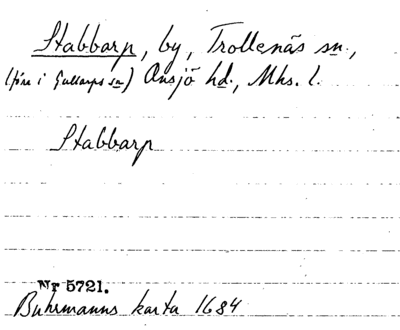 Stabbarp, by, Trollenäs sn.,
(förr i Gullarps sn) Onsjö hd., Mhs. l.
Stabbarp
Nr 5721.
Buhrmanns karta 1684